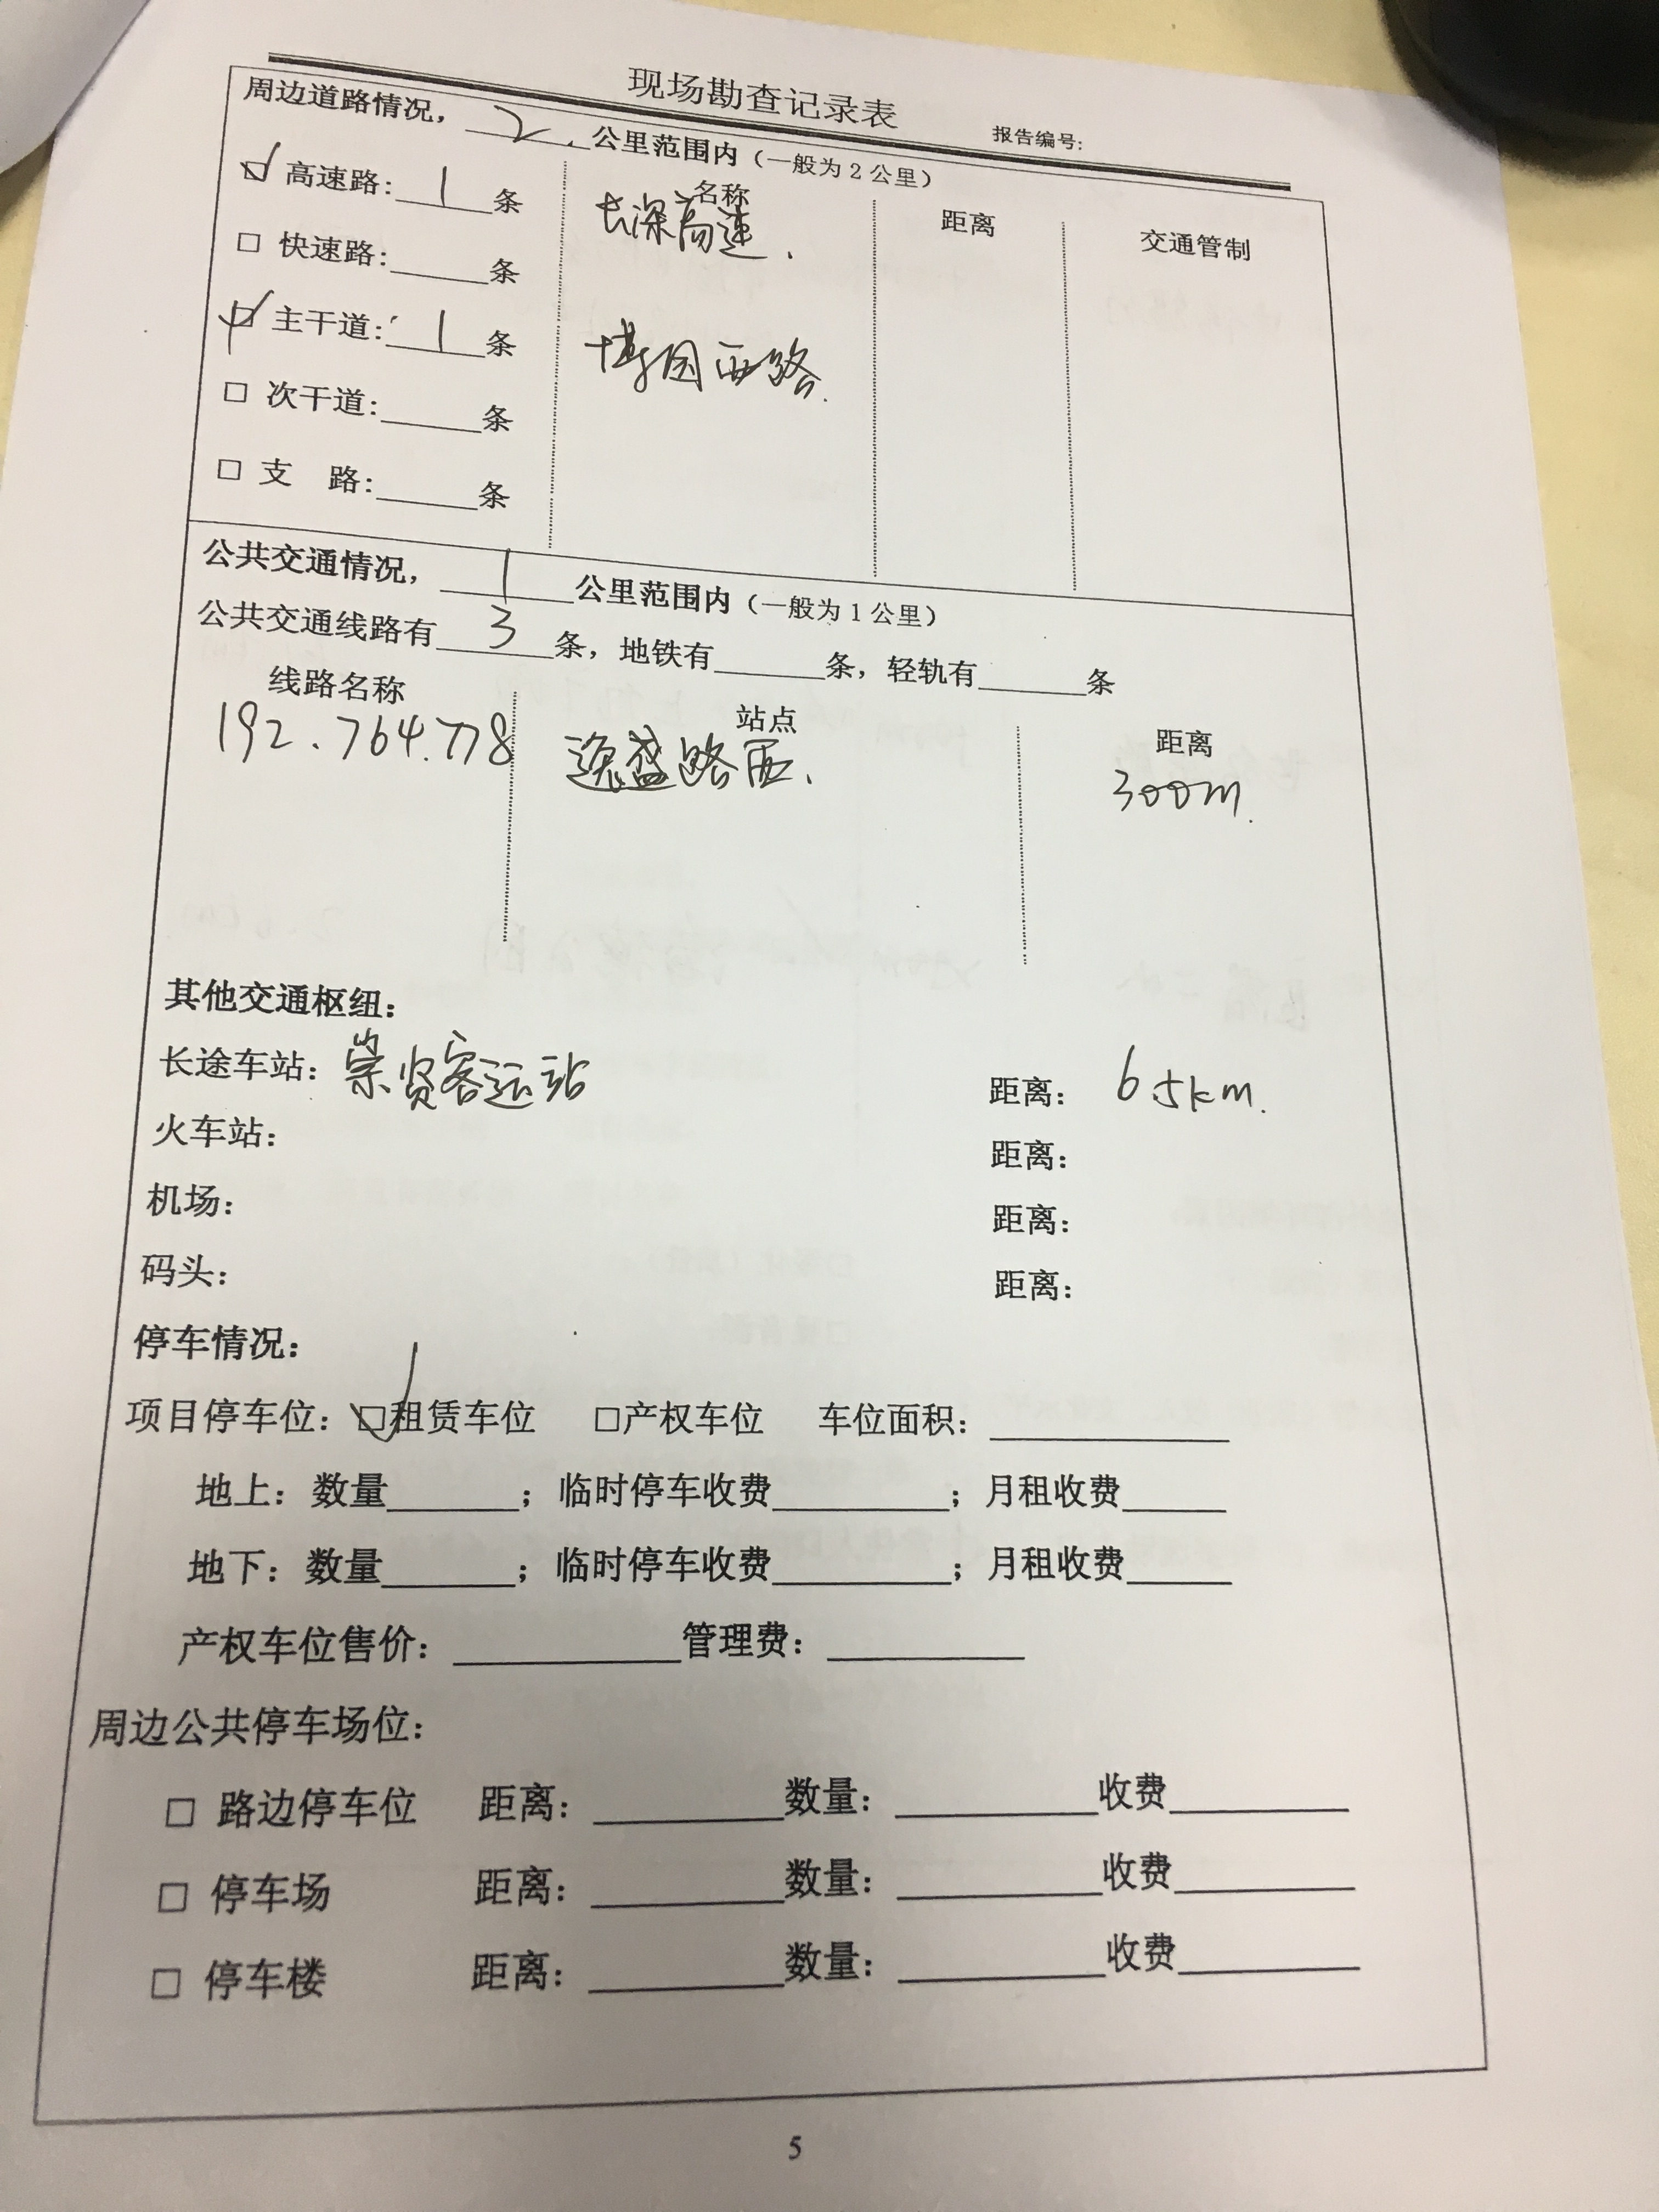 现场勘查记录表
报告编号:
周边道路情况，2.公里范围内（一般为2公里）
名称 距离 交通管制
☑ 高速路:1条 长深高速.
□ 快速路:____条
☑ 主干道:1条 博园西路.
□ 次干道:____条
□ 支 路:____条
公共交通情况，1公里范围内（一般为1公里）
公共交通线路有3条，地铁有____条，轻轨有____条
线路名称 站点 距离
192.764.778 逸盛路西. 300m.
其他交通枢纽：
长途车站：崇贤客运站 距离： 6.5km.
火车站： 距离：
机场： 距离：
码头： 距离：
停车情况：
项目停车位：☑租赁车位 □产权车位 车位面积：____
地上：数量____；临时停车收费____；月租收费____
地下：数量____；临时停车收费____；月租收费____
产权车位售价：____管理费：____
周边公共停车场位：
□ 路边停车位 距离：____数量：____收费____
□ 停车场 距离：____数量：____收费____
□ 停车楼 距离：____数量：____收费____
5